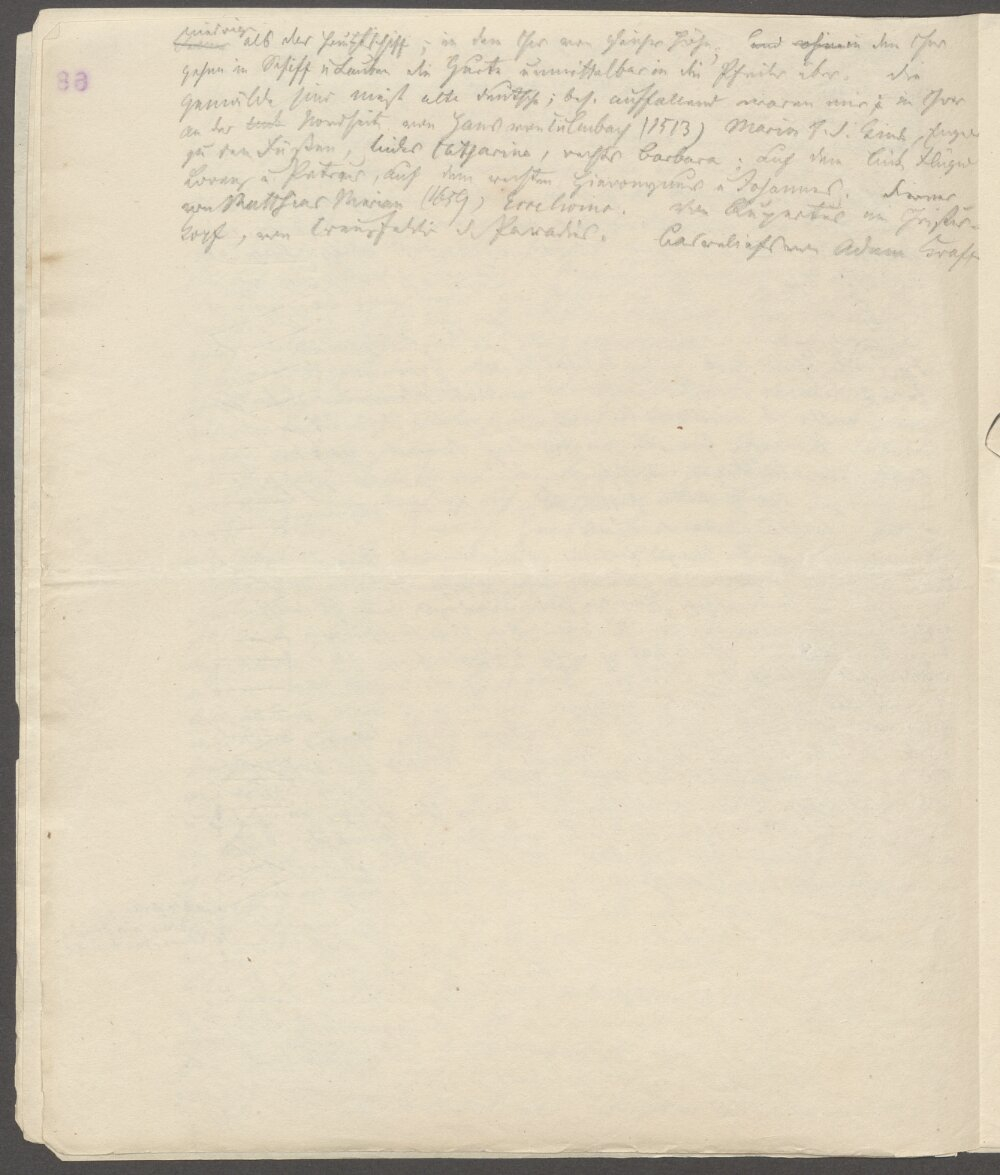 niedriger als das Hauptschiff; in dem Chor von gleicher Höhe, und in den Chor
gehen in Schiff u die Gurte unmittelbar in die Pfeiler über. Die
Gemälde sind meist alte deutsche; bes. auffallend waren mir: im Chor
an der Nordseite von Hans von Culmbach (1513) Maria d. Kind, Engel
zu den Füßen, links Catharina, rechts Barbara. Auf dem link. Flügel
Lorenz u Petrus, auf dem rechten Hieronymus u Johannes. Ferner
von Matthias Merian (1659) Ecce homo. Von Rupertus ein
kopf, von Creuzfelder d. Paradies. Basreliefs von Adam Kraft